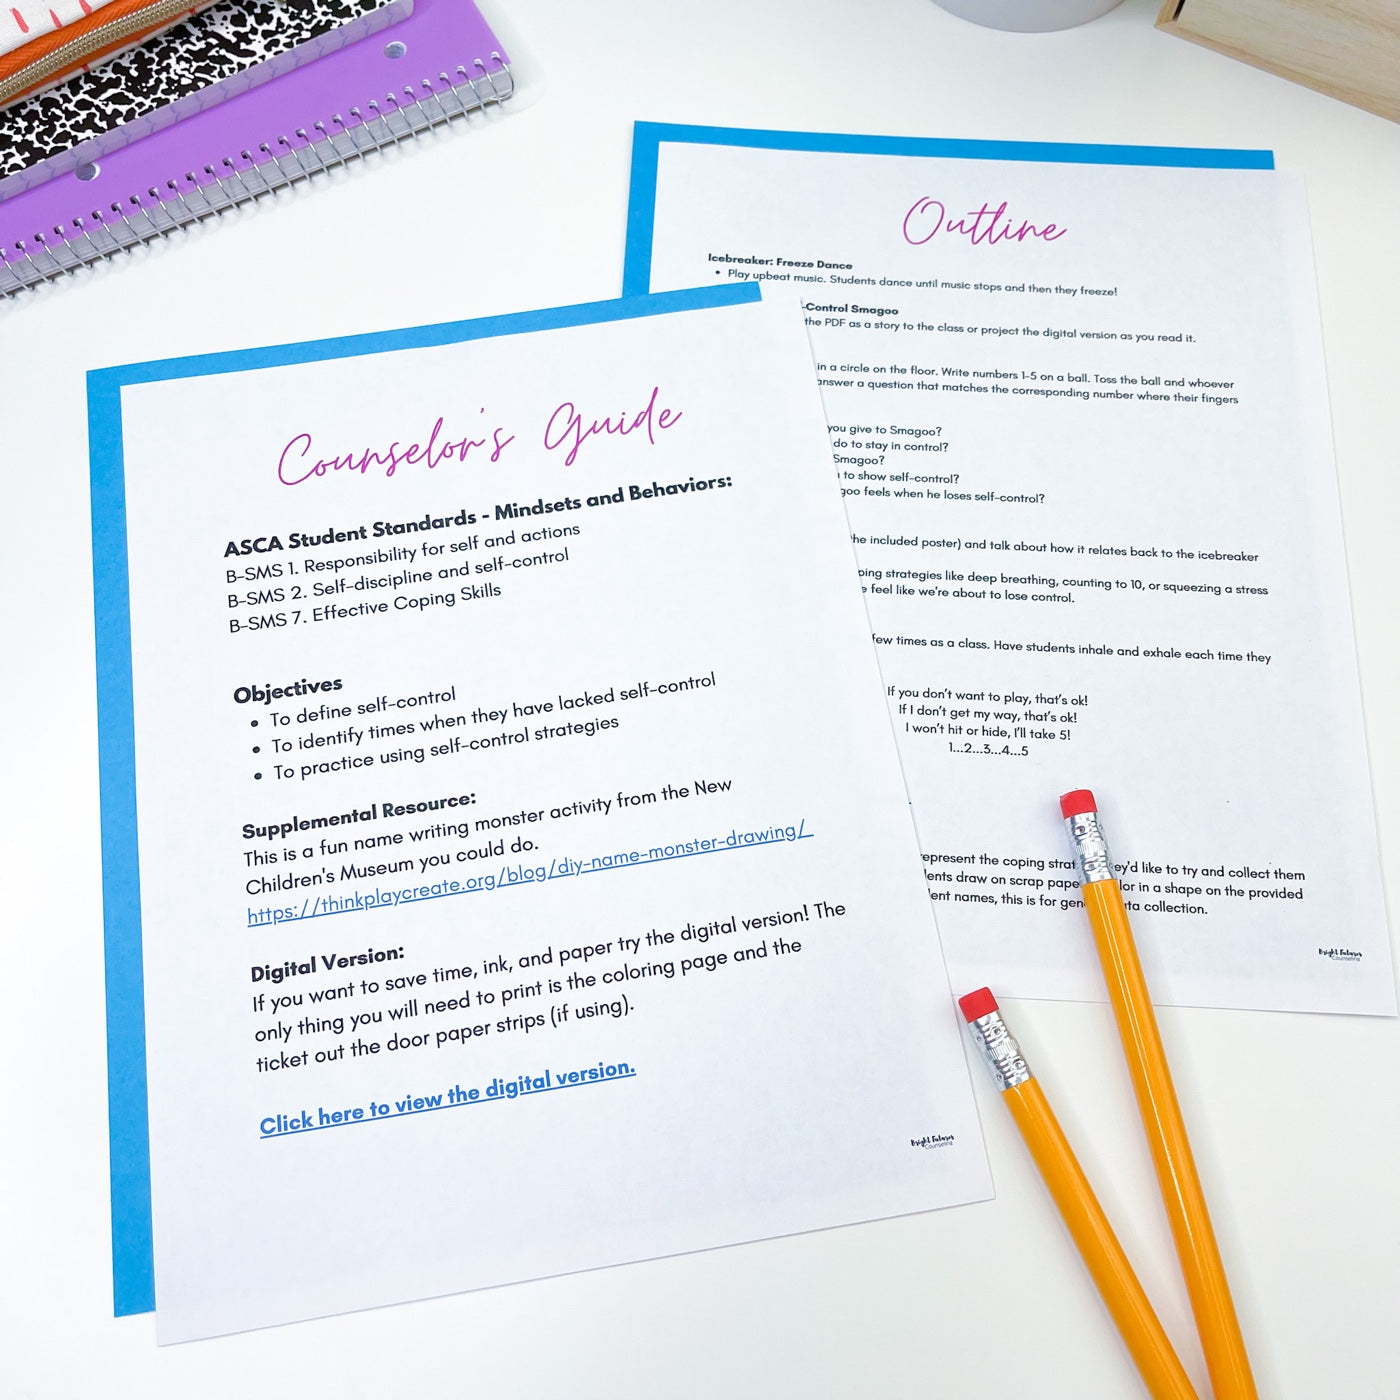 Outline
Icebreaker: Freeze Dance
• Play upbeat music. Students dance until music stops and then they freeze!
-Control Smagoo
the PDF as a story to the class or project the digital version as you read it.
in a circle on the floor. Write numbers 1-5 on a ball. Toss the ball and whoever
answer a question that matches the corresponding number where their fingers
you give to Smagoo?
do to stay in control?
Smagoo?
to show self-control?
feels when he loses self-control?
the included poster) and talk about how it relates back to the icebreaker
strategies like deep breathing, counting to 10, or squeezing a stress
feel like we're about to lose control.
few times as a class. Have students inhale and exhale each time they
If you don't want to play, that's ok!
If I don't get my way, that's ok!
I won't hit or hide, I'll take 5!
1...2...3...4...5
represent the coping they'd like to try and collect them
draw on scrap in a shape on the provided
names, this is for data collection.
Bright Futures
Counseling
Counselor's Guide
ASCA Student Standards - Mindsets and Behaviors:
B-SMS 1. Responsibility for self and actions
B-SMS 2. Self-discipline and self-control
B-SMS 7. Effective Coping Skills
Objectives
• To define self-control
• To identify times when they have lacked self-control
• To practice using self-control strategies
Supplemental Resource:
This is a fun name writing monster activity from the New
Children's Museum you could do.
https://thinkplaycreate.org/blog/diy-name-monster-drawing/
Digital Version:
If you want to save time, ink, and paper try the digital version! The
only thing you will need to print is the coloring page and the
ticket out the door paper strips (if using).
Click here to view the digital version.
Bright Futures
Counseling